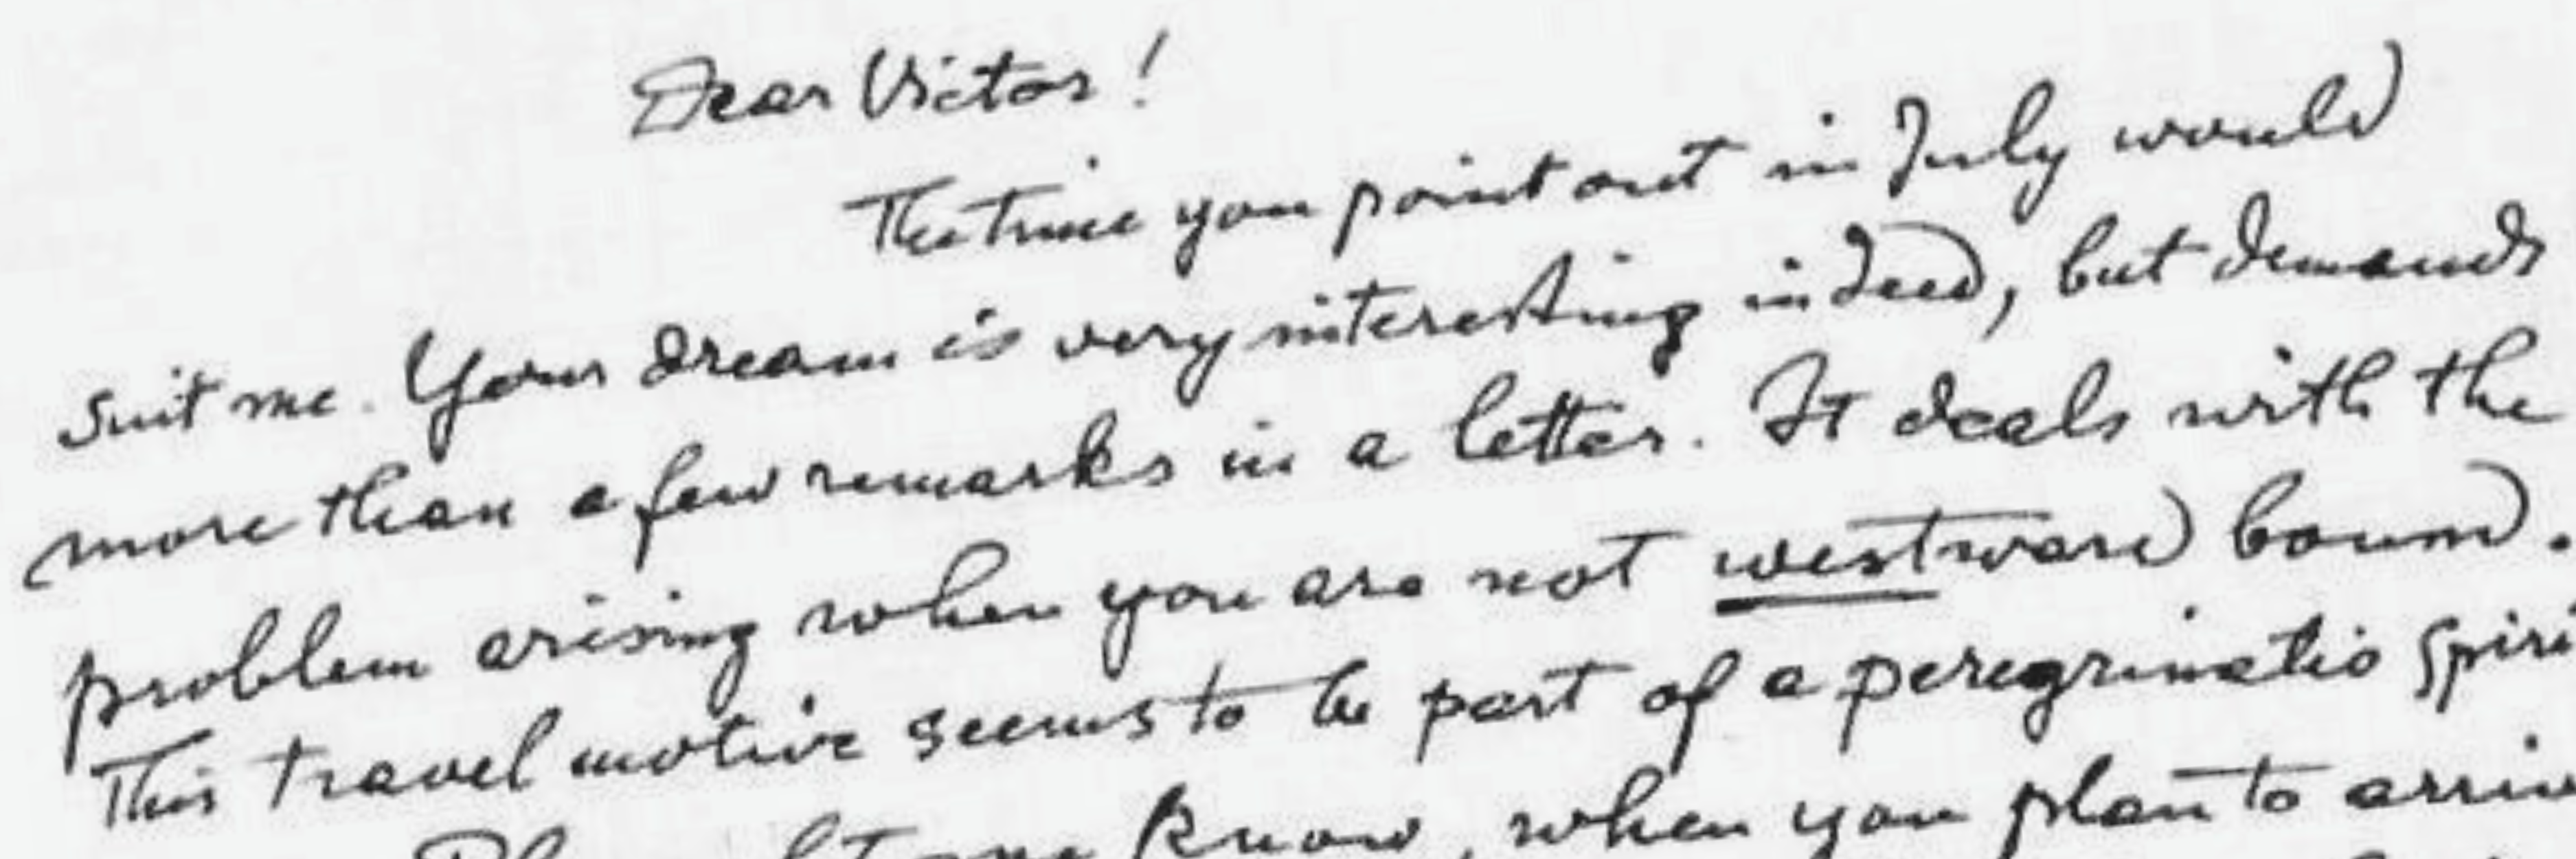 Dear Victor!
The time you point out in July would
suit me. Your dream is very interesting indeed, but demands
more than a few remarks in a letter. It deals with the
problem arising when you are not westward bound.
This travel motive seems to be part of a peregrinatio spiri
let me know, when you plan to arriv